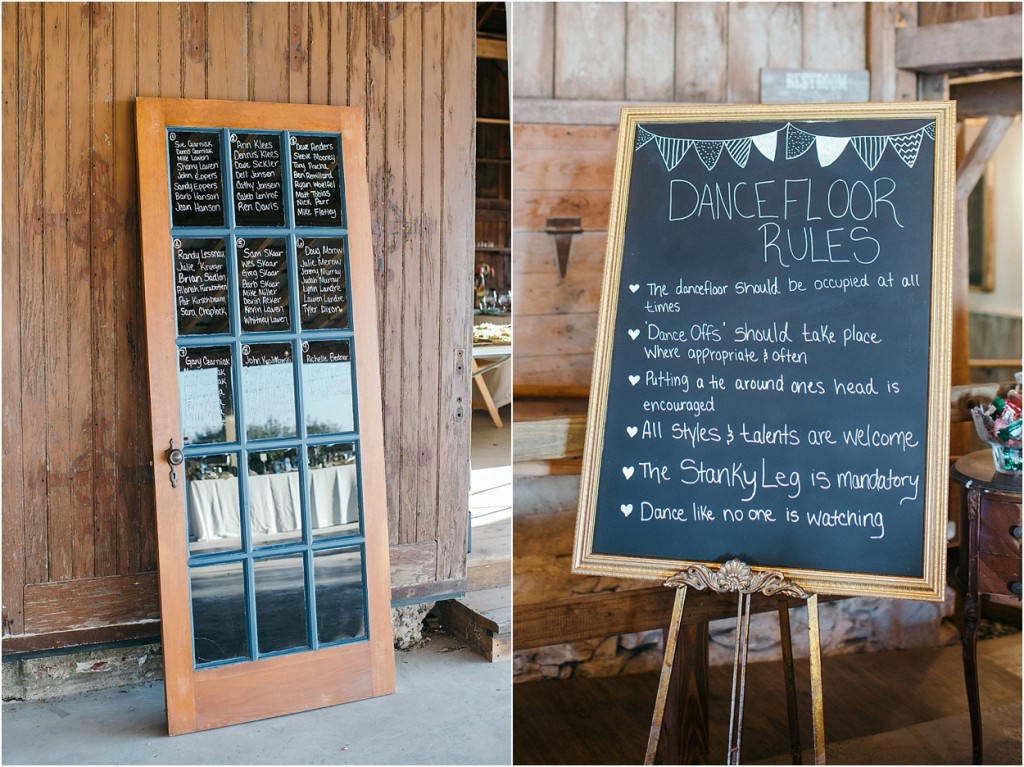 1
Sue Czarniak
Dennis Czarniak
Mike Lawen
Sherry Lawen
John Eppers
Sandy Eppers
Barb Hanson
Jean Hanson
2
Ann Klees
Dennis Klees
Dave Sickler
Deit Jensen
Cathy Jensen
Caleb
Ren Davis
3
Dave Anders
Steeve Mooney
Tony
Ben Remillard
Ryan Woelfel
Matt Tobias
Nick Parr
Mike Flatley
Randy Lessnau
Julie Krueger
Brian Sadlon
Pat Kirschbaum
Sara Chaplock
5
Sam Skaar
Wes Skaar
Greg Skaar
Barb Skaar
Mike Miller
Devin Reker
Kevin Lawen
Whitney Lawen
6
Doug Merow
Julie Merow
Jeremy Murray
Judah Murray
Lynn Landre
Lauren Landre
Tyler Dixon
7
Gary Czarniak
John
9
Richelle Bednar
RESTROOM
DANCEFLOOR
RULES
The dancefloor should be occupied at all
times
'Dance Offs' should take place
where appropriate & often
Putting a tie around ones head is
encouraged
All styles & talents are welcome
The Stanky Leg is mandatory
Dance like no one is watching